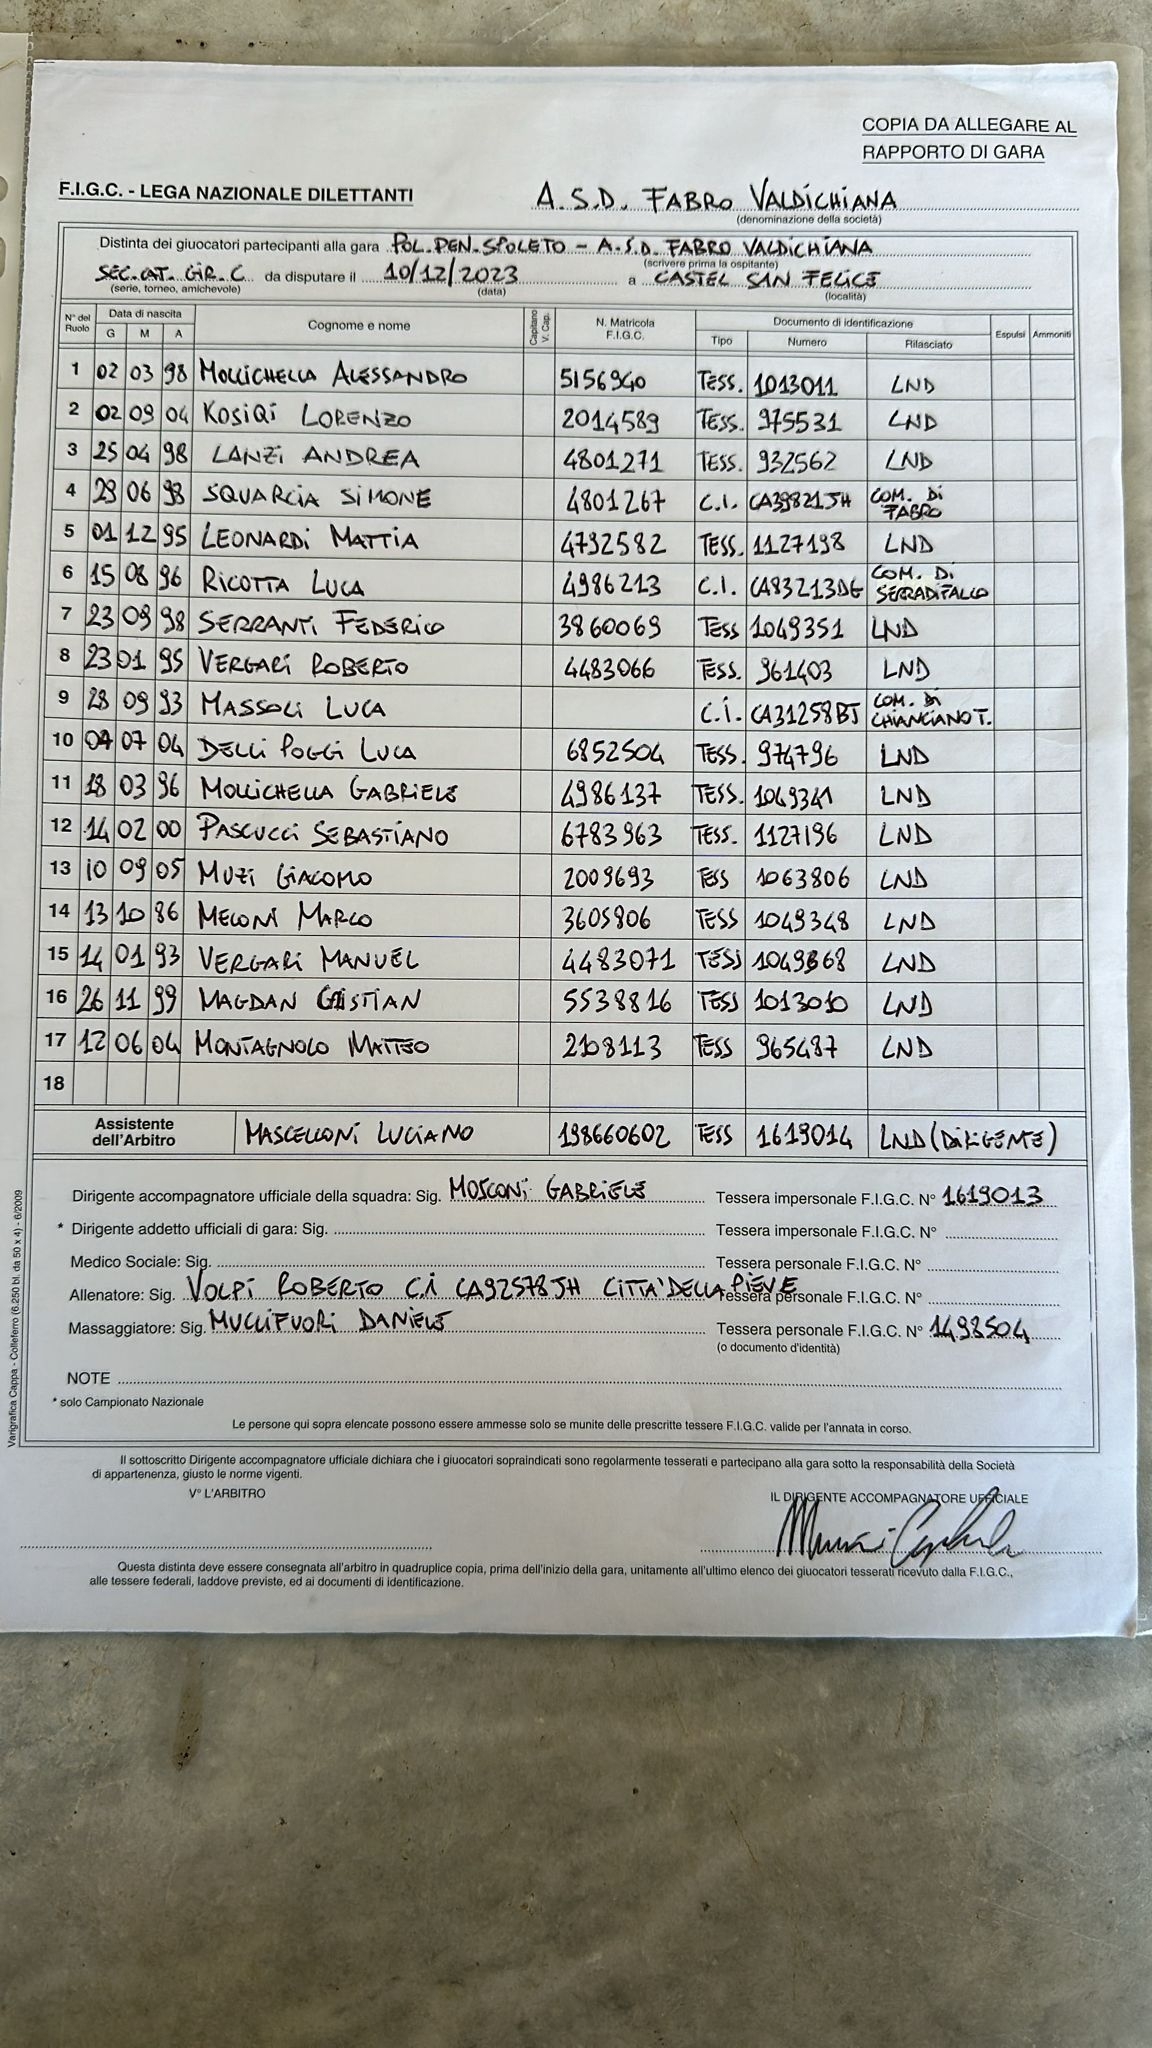 COPIA DA ALLEGARE AL
RAPPORTO DI GARA
F.I.G.C. - LEGA NAZIONALE DILETTANTI A.S.D. FABRO VALDICHIANA
(denominazione della società)
Distinta dei giuocatori partecipanti alla gara POL. DEN. SPOLETO - A.S.D. FABRO VALDICHIANA
(scrivere prima la ospitante)
SEC. CAT. GIR. C da disputare il 10/12/2023 a CASTEL SAN FELICE
(serie, torneo, amichevole) (data) (località)
N° del Ruolo Data di nascita G M A Cognome e nome Capitano V. Cap. N. Matricola F.I.G.C. Documento di identificazione Tipo Numero Rilasciato Espulsi Ammoniti
1 02 03 98 MOLLICHELLA ALESSANDRO 5156940 TESS. 1013011 LND
2 02 09 04 KOSIQI LORENZO 2014589 TESS. 975531 LND
3 25 04 98 LANZI ANDREA 4801271 TESS. 932562 LND
4 29 06 98 SQUARCIA SIMONE 4801267 C.I. CA39821JH COM. DI FABRO
5 01 12 95 LEONARDI MATTIA 4792582 TESS. 1127198 LND
6 15 08 96 RICOTTA LUCA 4986213 C.I. CA83213DG COM. DI SERRADIFALCO
7 23 09 98 SERRANTI FEDERICO 3860069 TESS 1049351 LND
8 23 01 95 VERGARI ROBERTO 4483066 TESS. 961403 LND
9 28 09 93 MASSOLI LUCA C.I. CA31258BJ COM. DI CHIANCIANO T.
10 07 04 DELLI POGGI LUCA 6852504 TESS. 974796 LND
11 18 03 96 MOLLICHELLA GABRIELE 4986137 TESS. 1049341 LND
12 14 02 00 PASCUCCI SEBASTIANO 6783963 TESS. 1127196 LND
13 10 09 05 MUZI GIACOMO 2009693 TESS 1063806 LND
14 13 10 86 MELONI MARCO 3605806 TESS 1049348 LND
15 14 01 93 VERGARI MANUEL 4483071 TESS LND
16 26 11 99 MAGDAN CRISTIAN 5538816 TESS 1013010 LND
17 12 06 04 MONTAGNOLO MATTEO 2108113 TESS 965487 LND
18
Assistente dell'Arbitro MASCELLONI LUCIANO 198660602 TESS 1619014 LND (DIRIGENTE)
Dirigente accompagnatore ufficiale della squadra: Sig. MOSCONI GABRIELE Tessera impersonale F.I.G.C. N° 1619013
* Dirigente addetto ufficiali di gara: Sig. Tessera impersonale F.I.G.C. N°
Medico Sociale: Sig. Tessera personale F.I.G.C. N°
Allenatore: Sig. VOLPI ROBERTO C.I CA92578JH CITTA' DELLA PIEVE Tessera personale F.I.G.C. N°
Massaggiatore: Sig. MUCCIFUORI DANIELE Tessera personale F.I.G.C. N° 1498504
(o documento d'identità)
NOTE
* solo Campionato Nazionale
Le persone qui sopra elencate possono essere ammesse solo se munite delle prescritte tessere F.I.G.C. valide per l'annata in corso.
Il sottoscritto Dirigente accompagnatore ufficiale dichiara che i giuocatori sopraindicati sono regolarmente tesserati e partecipano alla gara sotto la responsabilità della Società
di appartenenza, giusto le norme vigenti.
V° L'ARBITRO IL DIRIGENTE ACCOMPAGNATORE UFFICIALE
Questa distinta deve essere consegnata all'arbitro in quadruplice copia, prima dell'inizio della gara, unitamente all'ultimo elenco dei giuocatori tesserati ricevuto dalla F.I.G.C.,
alle tessere federali, laddove previste, ed ai documenti di identificazione.
Varigrafica Cappa - Colleferro (6.250 bl. da 50 x 4) - 6/2009